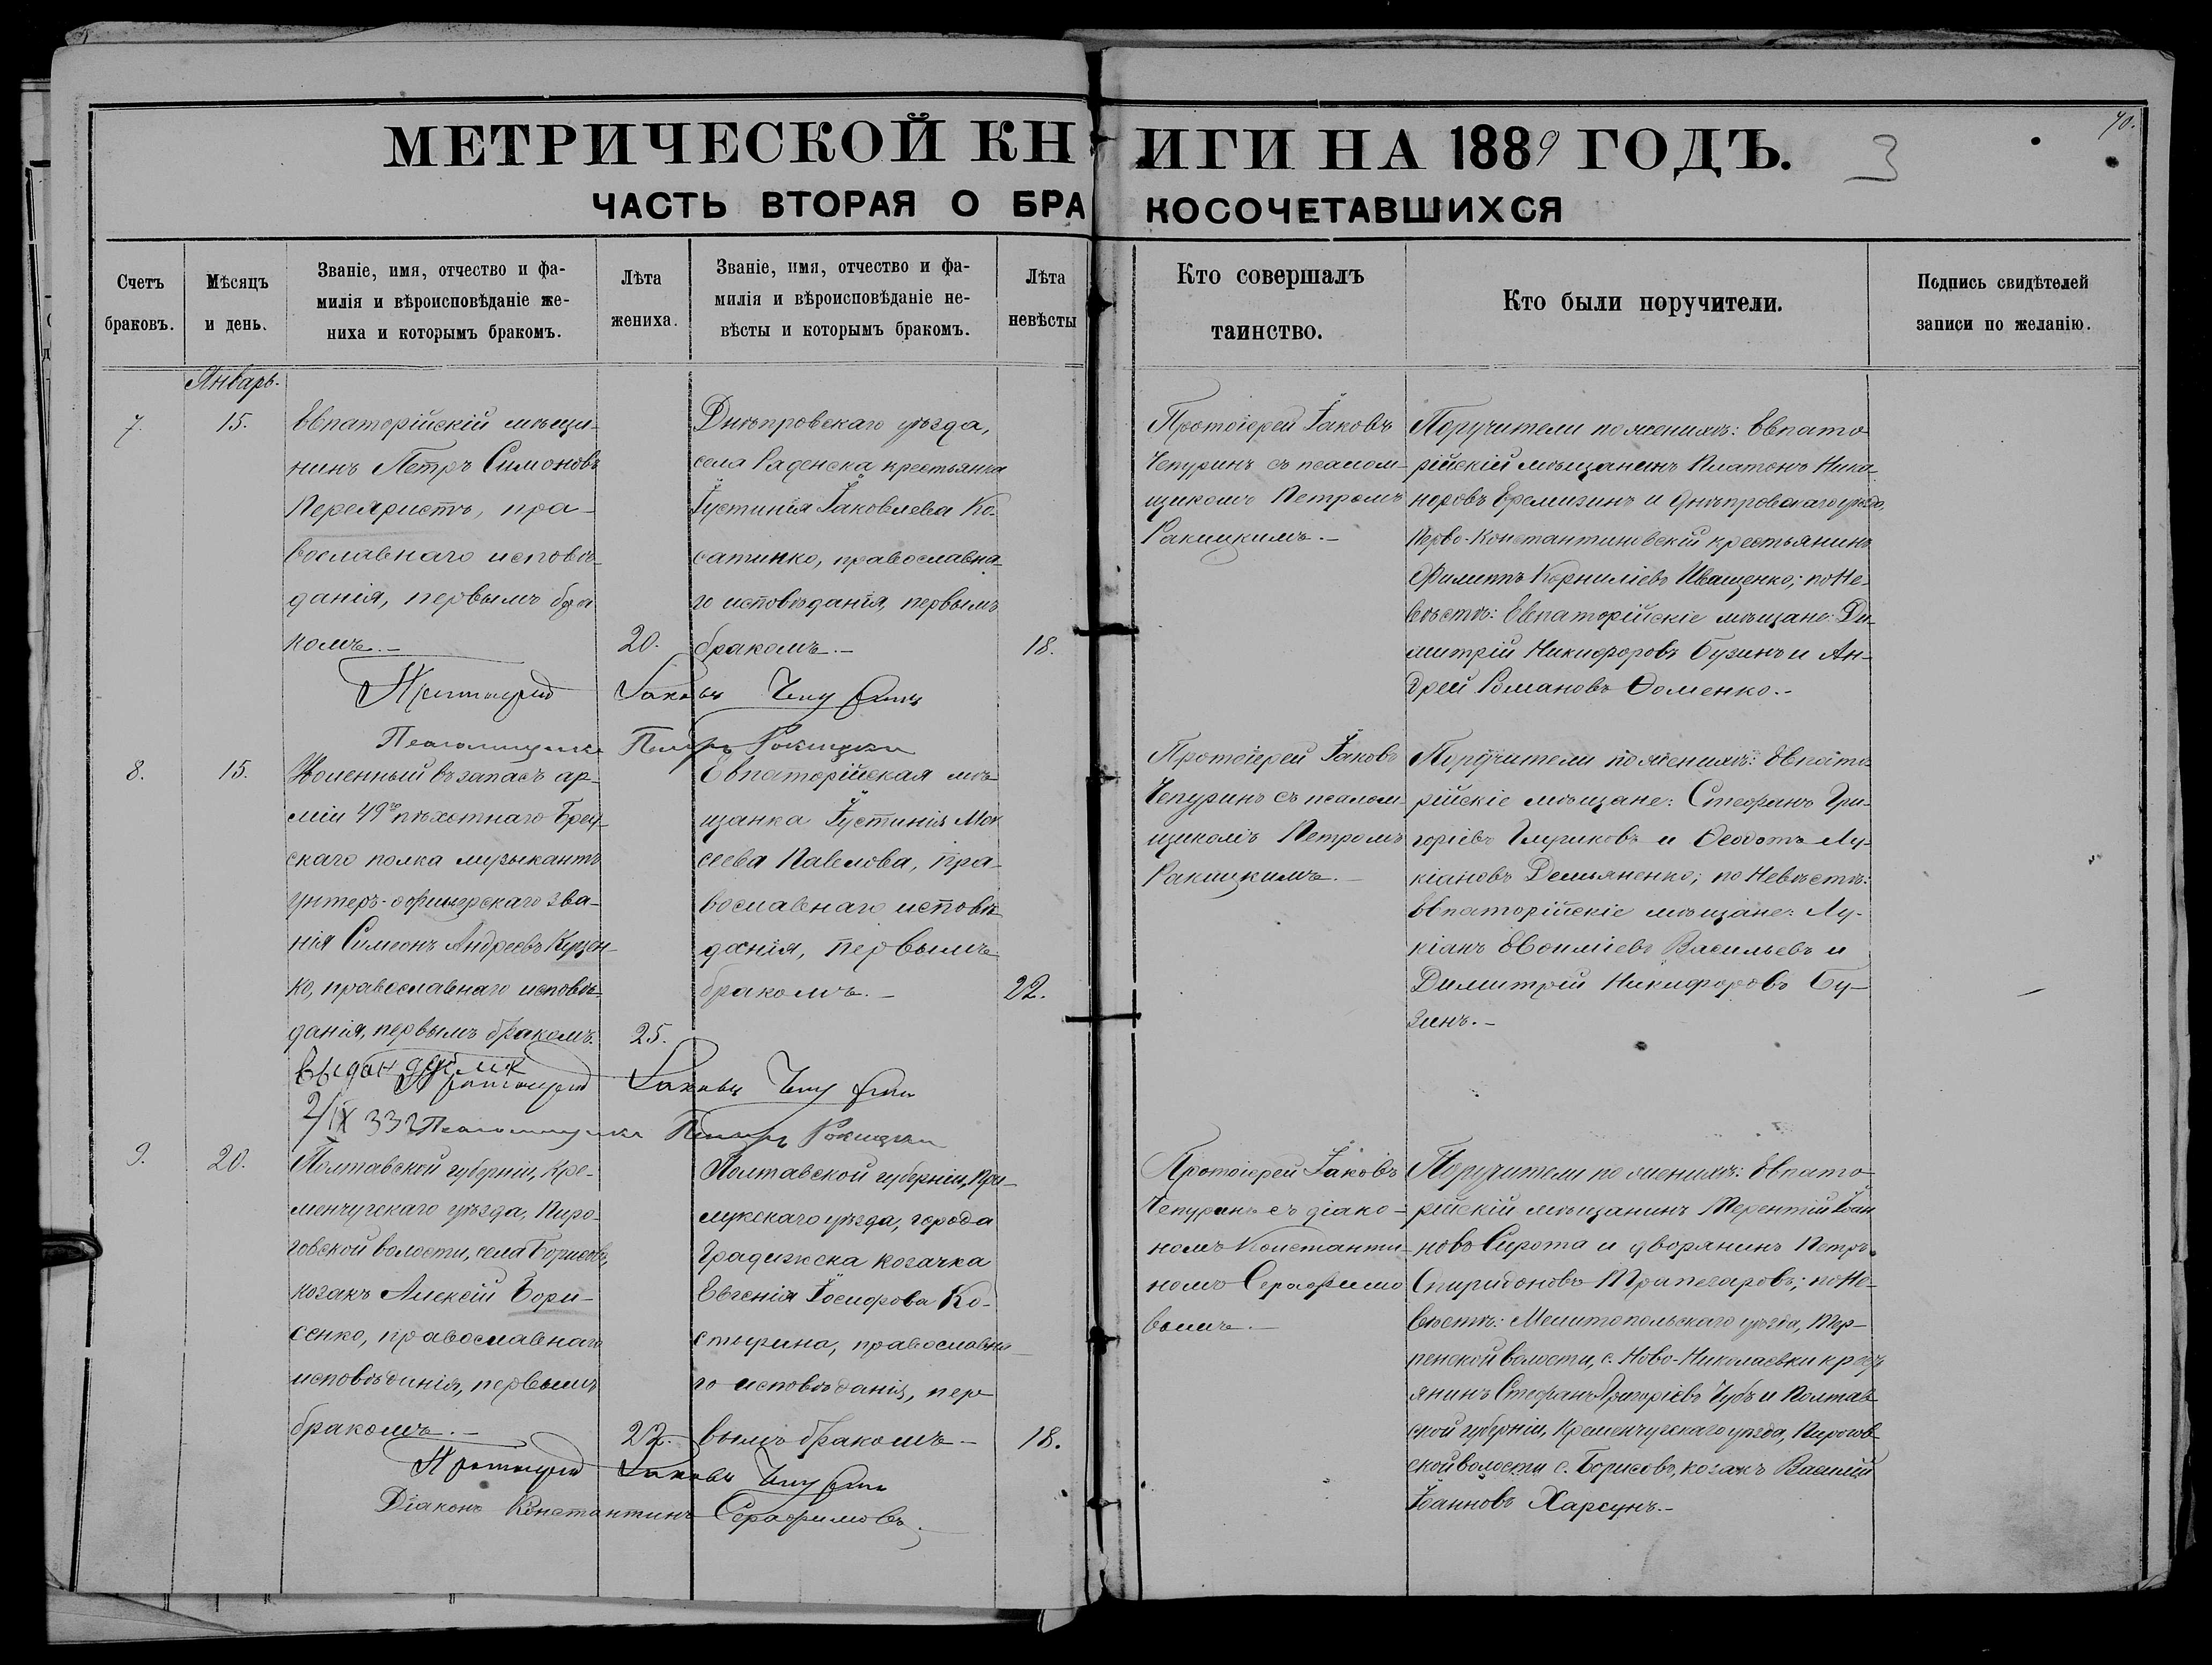 МЕТРИЧЕСКОЙ КНИГИ НА 1889 ГОДЪ.
3
70.
ЧАСТЬ ВТОРАЯ О БРАКОСОЧЕТАВШИХСЯ
Счетъ
браковъ.
Мѣсяцъ
и день.
Званіе, имя, отчество и фа-
милія и вѣроисповѣданіе же-
ниха и которымъ бракомъ.
Лѣта
жениха.
Званіе, имя, отчество и фа-
милія и вѣроисповѣданіе не-
вѣсты и которымъ бракомъ.
Лѣта
невѣсты
Кто совершалъ
таинство.
Кто были поручители.
Подпись свидѣтелей
записи по желанію.
Январь.
7.
15.
Евпаторійскій мѣща-
нинъ Петръ Симоновъ
пра-
вославнаго исповѣ-
данія, первымъ бра
комъ.-
20.
Днѣпровскаго уѣзда,
села Раденска крестьянка
Іустинія Іаковлева Ко-
сатинко, православна-
го исповѣданія, первымъ
бракомъ.-
18.
Протоіерей Іаковъ
Чепуринъ съ псалом-
щикомъ Петромъ
Ракицкимъ.-
Поручители по женихѣ: Евпато-
рійскій мѣщанинъ Платонъ Ника-
норовъ Еремизинъ и Днѣпровскаго уѣзда,
Перво-Константиновскій крестьянинъ
Филиппъ Корниліевъ Иващенко; по Не-
вѣстѣ: Евпаторійскіе мѣщане: Ди-
митрій Никифоровъ Бузинъ и Ан-
дрей Романовъ Ѳоменко.-
Протоіерей Іаковъ Чепуринъ
Псаломщикъ Петръ Ракицкій
8.
15.
Уволенный въ запасъ ар-
міи 49го пѣхотнаго Брест-
скаго полка музыкантъ
унтеръ-офицерскаго зва-
нія Симеонъ Андреевъ Куцен-
ко, православнаго исповѣ-
данія, первымъ бракомъ.
25.
Евпаторійская мѣ-
щанка Іустинія Мои
сеева Павлова, пра-
вославнаго исповѣ-
данія, первымъ
бракомъ.-
22.
Протоіерей Іаковъ
Чепуринъ съ псалом-
щикомъ Петромъ
Ракицкимъ.-
Поручители по женихѣ: Евпато-
рійскіе мѣщане: Стефанъ Гри-
горіевъ и Ѳеодотъ Лу-
кіановъ Демьяненко; по Невѣстѣ:
Евпаторійскіе мѣщане: Лу-
кіанъ Евѳиміевъ Васильевъ и
Димитрій Никифоровъ Бу-
зинъ.-
Выдан
2/IX 33г
Протоіерей Іаковъ Чепуринъ
Псаломщикъ Петръ Ракицкій
9.
20.
Полтавской губерніи, Кре-
менчугскаго уѣзда, Пиро-
говской волости, села Борисовъ,
козакъ Алексій Бори-
сенко, православнаго
исповѣданія, первымъ
бракомъ.-
22.
Полтавской губерніи,
уѣзда, города
Градижска козачка
Евгенія Іосифова Ко-
стырина, православна-
го исповѣданія, пер
вымъ бракомъ-
18.
Протоіерей Іаковъ
Чепуринъ съ діако-
номъ Константи-
номъ Серафимо
вымъ.-
Поручители по женихѣ: Евпато-
рійскій мѣщанинъ Терентій Іоан
новъ Сирота и дворянинъ Петръ
Спиридоновъ Трапезаровъ; по Не-
вѣстѣ: Мелитопольскаго уѣзда, Тер-
пенской волости, с. Ново-Николаевки крест
янинъ Стефанъ Григоріевъ Чубъ и Полтав-
ской губерніи, Кременчугскаго уѣзда, Пирогов-
ской волости с. Борисовъ, козакъ Василій
Іоанновъ Харсунъ.-
Протоіерей Іаковъ Чепуринъ
Діаконъ Константинъ Серафимовъ.